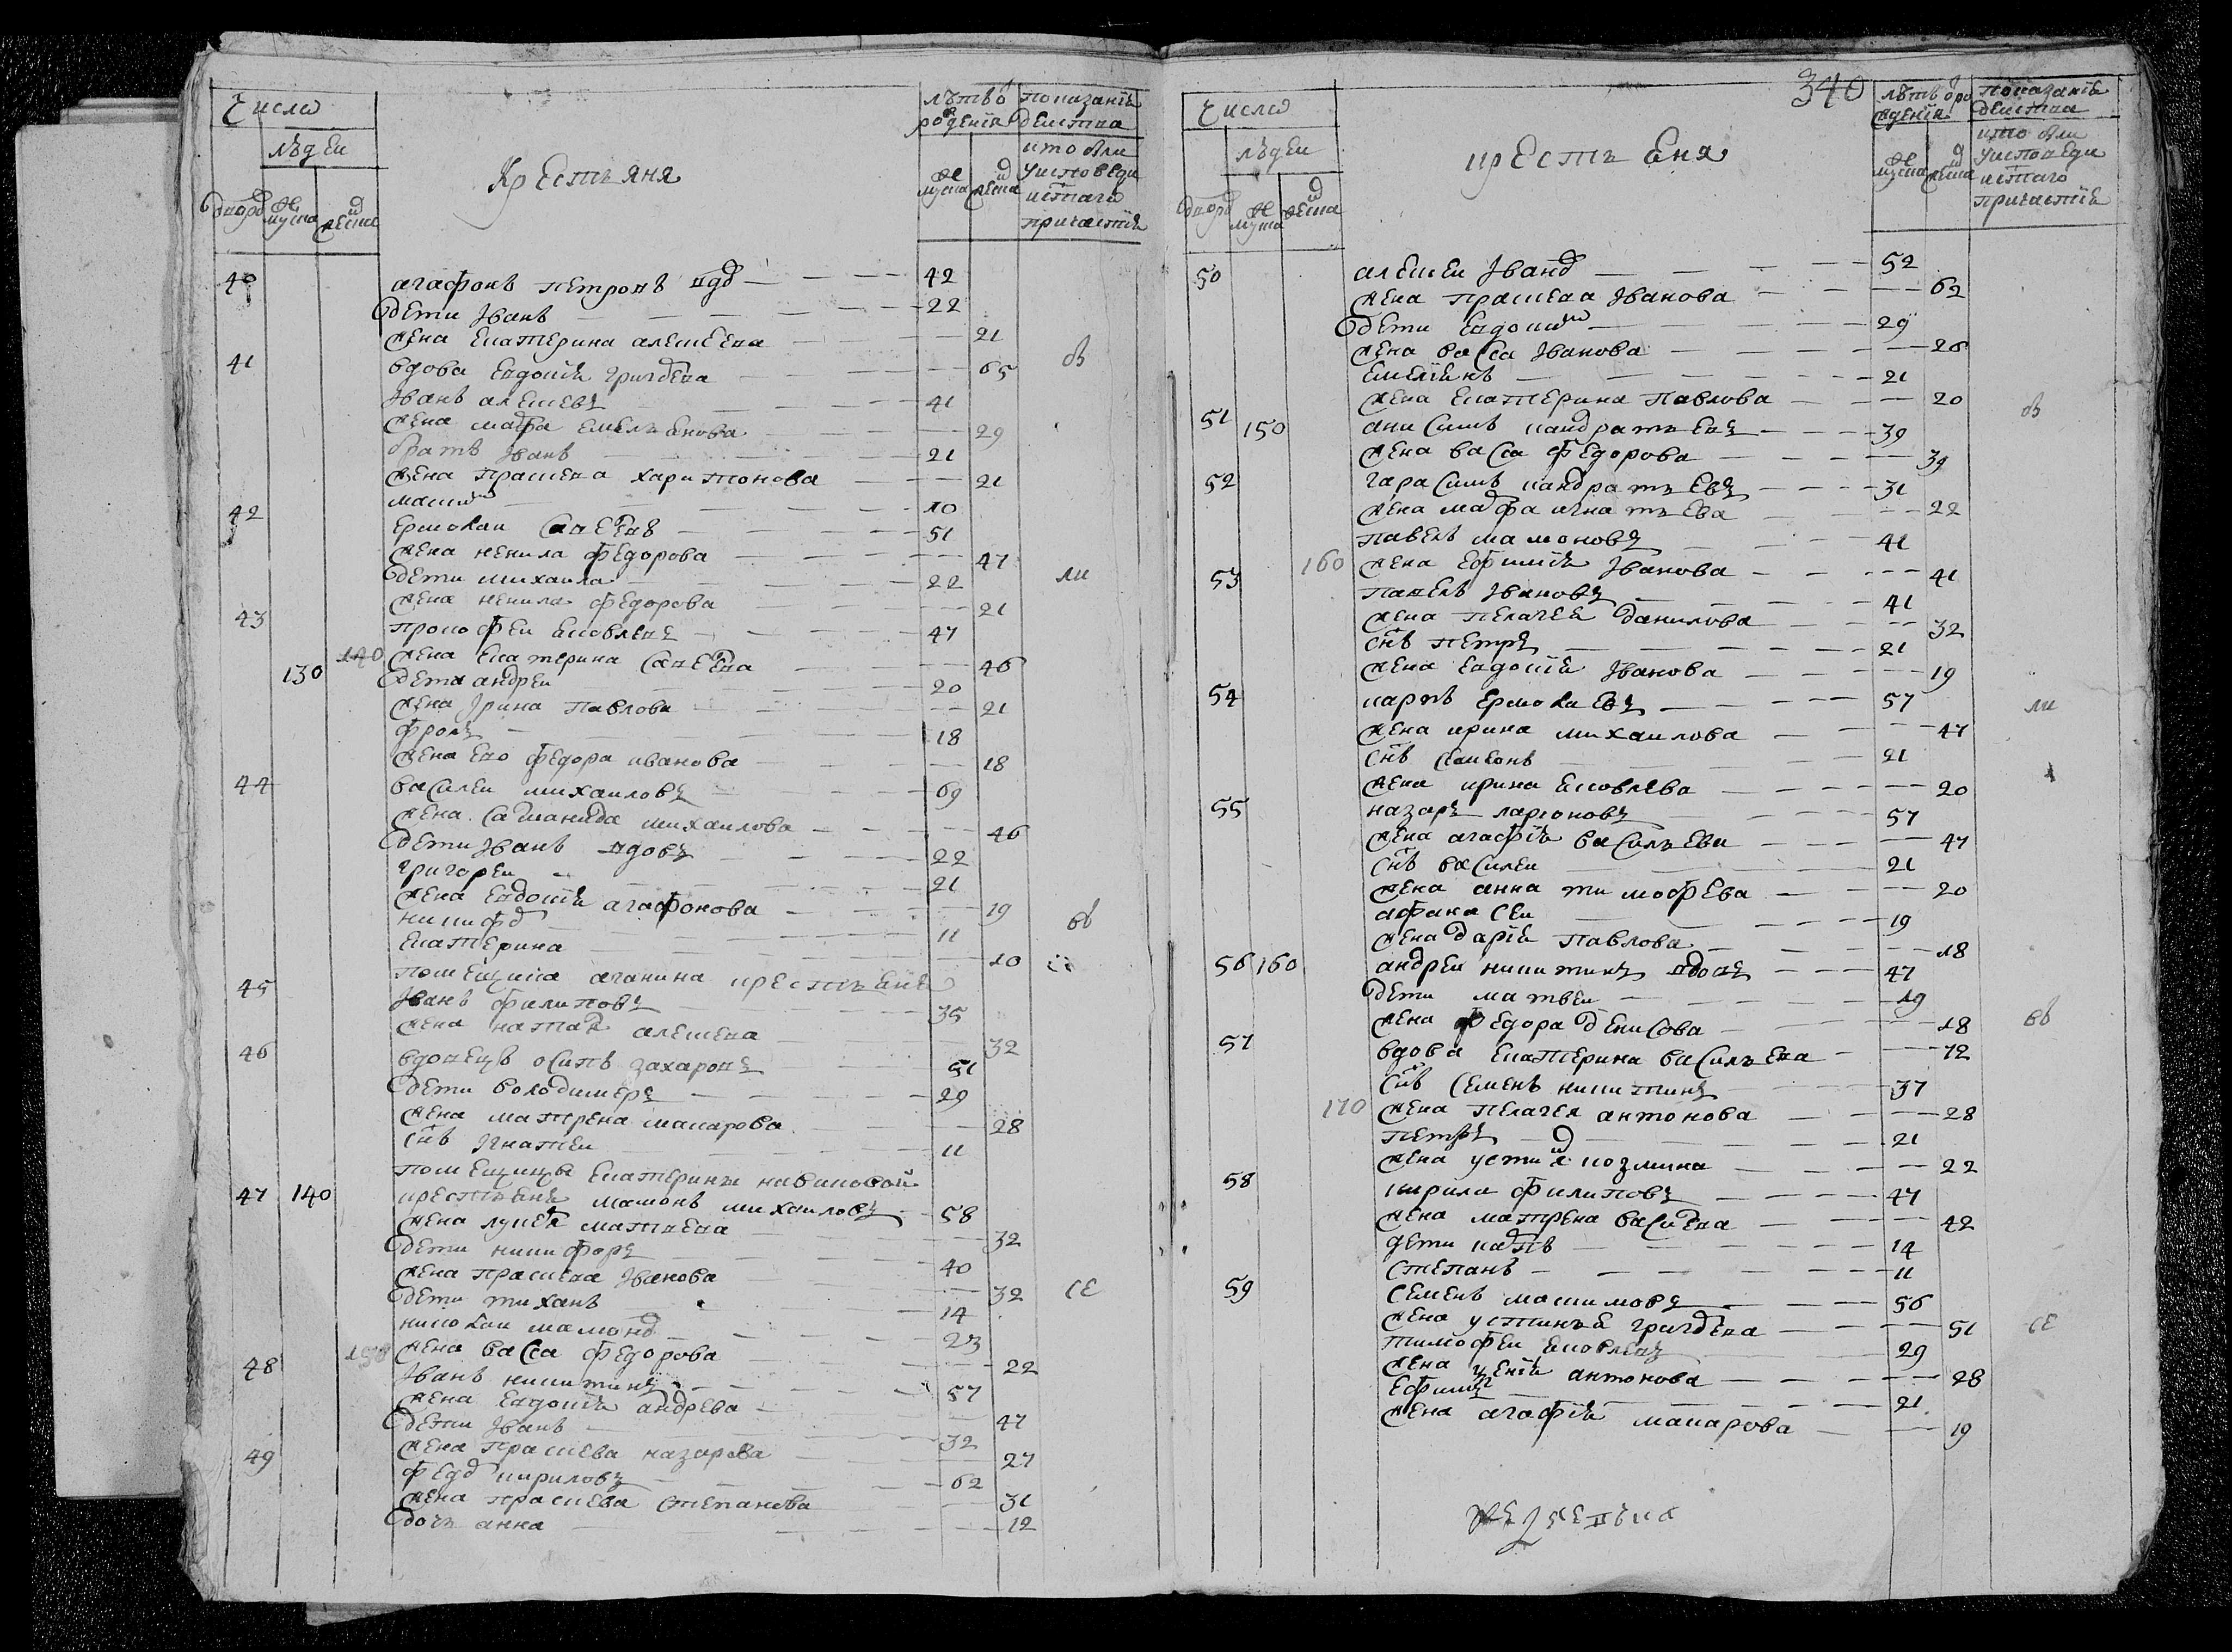 Число
людеи
дворо
мужеска
женска
Крестьяня
лѣтъ о
рождения
мужеска
женска
показание
действа
кто был
у исповеди
и с̃таго
причастия
40 агафонъ петровъ вдо — 42
дети Іванъ — 22
жена Екатерина алексеева — 21
41 вдова Евдокия григорева — 65
Іванъ алексевъ — 41
жена марфа Емельянова — 29
братъ Іванъ — 21
жена прасковя харитонова — 21
максим — 10
42 Ермолаи савелев — 51
жена ненила федорова — 47
дети михаила — 22
жена ненила федорова — 21
43 прокофеи яковлевъ — 47
140 жена Екатерина савелева — 46
130 дети андреи — 20
жена Ірина павлова — 21
фролъ — 18
жена Ево федора иванова — 18
44 василеи михаиловъ — 69
жена саманида михаилова — 46
дети Іванъ вдовъ — 22
григореи — 21
жена Евдокия агафонова — 19
никифо — 11
Екатерина — 10
помещика аганина крестьяне
45 Іванъ филиповъ — 35
жена наталя алексеева — 32
46 вдовецъ осипъ захаровъ — 51
дети володимеръ — 29
жена матрена макарова — 28
с̃нъ Игнатеи — 11
помещицы Екатерины
47 140 крестьяне мамонъ михаиловъ — 58
жена лукея матвева — 32
дети никифоръ — 40
жена прасковя Іванова — 32
дети тиханъ — 14
николаи мамоно — 23
150 жена васса федорова — 22
48 Іванъ никитинъ — 57
жена Евдокия андрева — 47
дети Іванъ — 32
жена прасковя назарова — 27
49 федо кириловъ — 62
жена прасковя степанова — 31
дочь анна — 12
въ
ли
въ
се
340
Число
людеи
дворо
мужеска
женска
крестьяня
лѣтъ о ро
ждения
мужеска
женска
показание
действа
кто был
у исповеди
и с̃таго
причастия
50 алексеи Івано — 52
жена прасковя Іванова — 62
дети Евдоким — 29
жена васса Іванова — 26
Емелянъ — 21
жена Екатерина павлова — 20
51 150 анисимъ кандратьевъ — 39
жена васса федорова — 39
52 гарасимъ кандратьевъ — 31
жена марфа игнатьева — 22
павелъ мамоновъ — 41
160 жена Ефимия Іванова — 41
53 павелъ Івановъ — 41
жена пелагея данилова — 32
с̃нъ петръ — 21
жена Евдокия Іванова — 19
54 карпъ Ермолаевъ — 57
жена ирина михаилова — 47
с̃нъ семенъ — 21
жена ирина яковлева — 20
55 назаръ ларионовъ — 57
жена агафия васильева — 47
с̃нъ василеи — 21
жена анна тимофева — 20
афанасеи — 19
жена дария павлова — 18
56 160 андреи никитинъ вдовъ — 47
дети матвеи — 19
жена федора денисова — 18
57 вдова Екатерина васильева — 72
с̃нъ семенъ никитинъ — 37
170 жена пелагея антонова — 28
петръ — 21
жена устиния козмина — 22
58 кирила филиповъ — 47
жена матрена васильева — 42
дети карпъ — 14
степанъ — 11
59 семенъ максимовъ — 56
жена устинья григорева — 51
тимофеи яковлевъ — 29
жена антонова — 28
Ефимъ — 21
жена агафия макарова — 19
въ
ли
въ
се